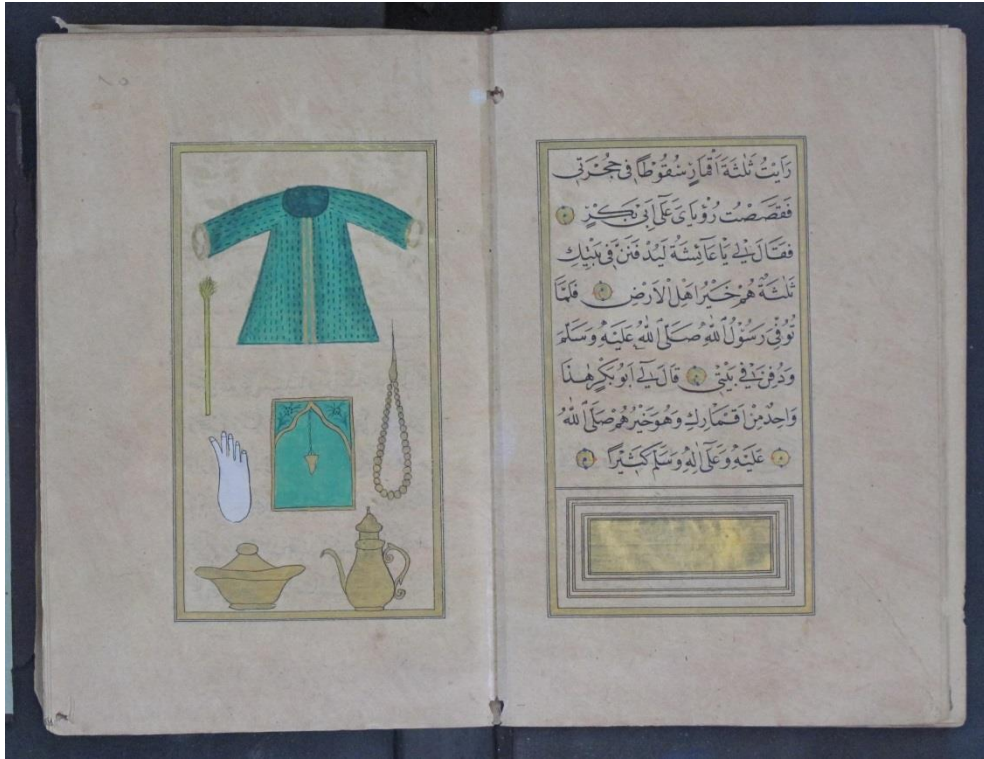 رَاَيْتُ ثَلٰثَةَ اَقْمَارٍ سُقُوْطًا فِى حُجْرَتِى
فَقَصَصْتُ رُؤْيَاىَ عَلٰى اَبِى بَكْرٍ
فَقَالَ لِى يَا عَائِشَةُ لَيُدْفَنَنَّ فِى بَيْتِكِ
ثَلٰثَةٌ هُمْ خَيْرُ اَهْلِ الْاَرْضِ فَلَمَّا
تُوُفِّىَ رَسُوْلُ اللّٰهِ صَلَّى اللّٰهُ عَلَيْهِ وَسَلَّمَ
وَدُفِنَ فِى بَيْتِى قَالَ لِى اَبُو بَكْرٍ هٰذَا
وَاحِدٌ مِنْ اَقْمَارِكِ وَهُوَ خَيْرُهُمْ صَلَّى اللّٰهُ
عَلَيْهِ وَعَلٰى اٰلِهِ وَسَلَّمَ كَثِيْرًا